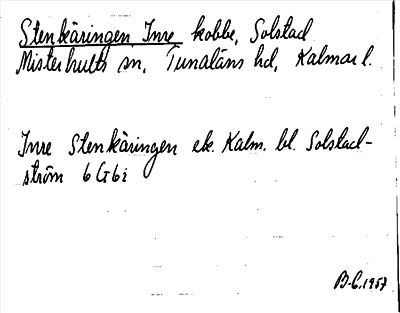 Stenkäringen Inre kobbe, Solstad
Misterhults sn, Tunaläns hd, Kalmar l.
Inre Stenkäringen ek. Kalm. bl. Solstad-
ström 6G6i
B-C. 1957